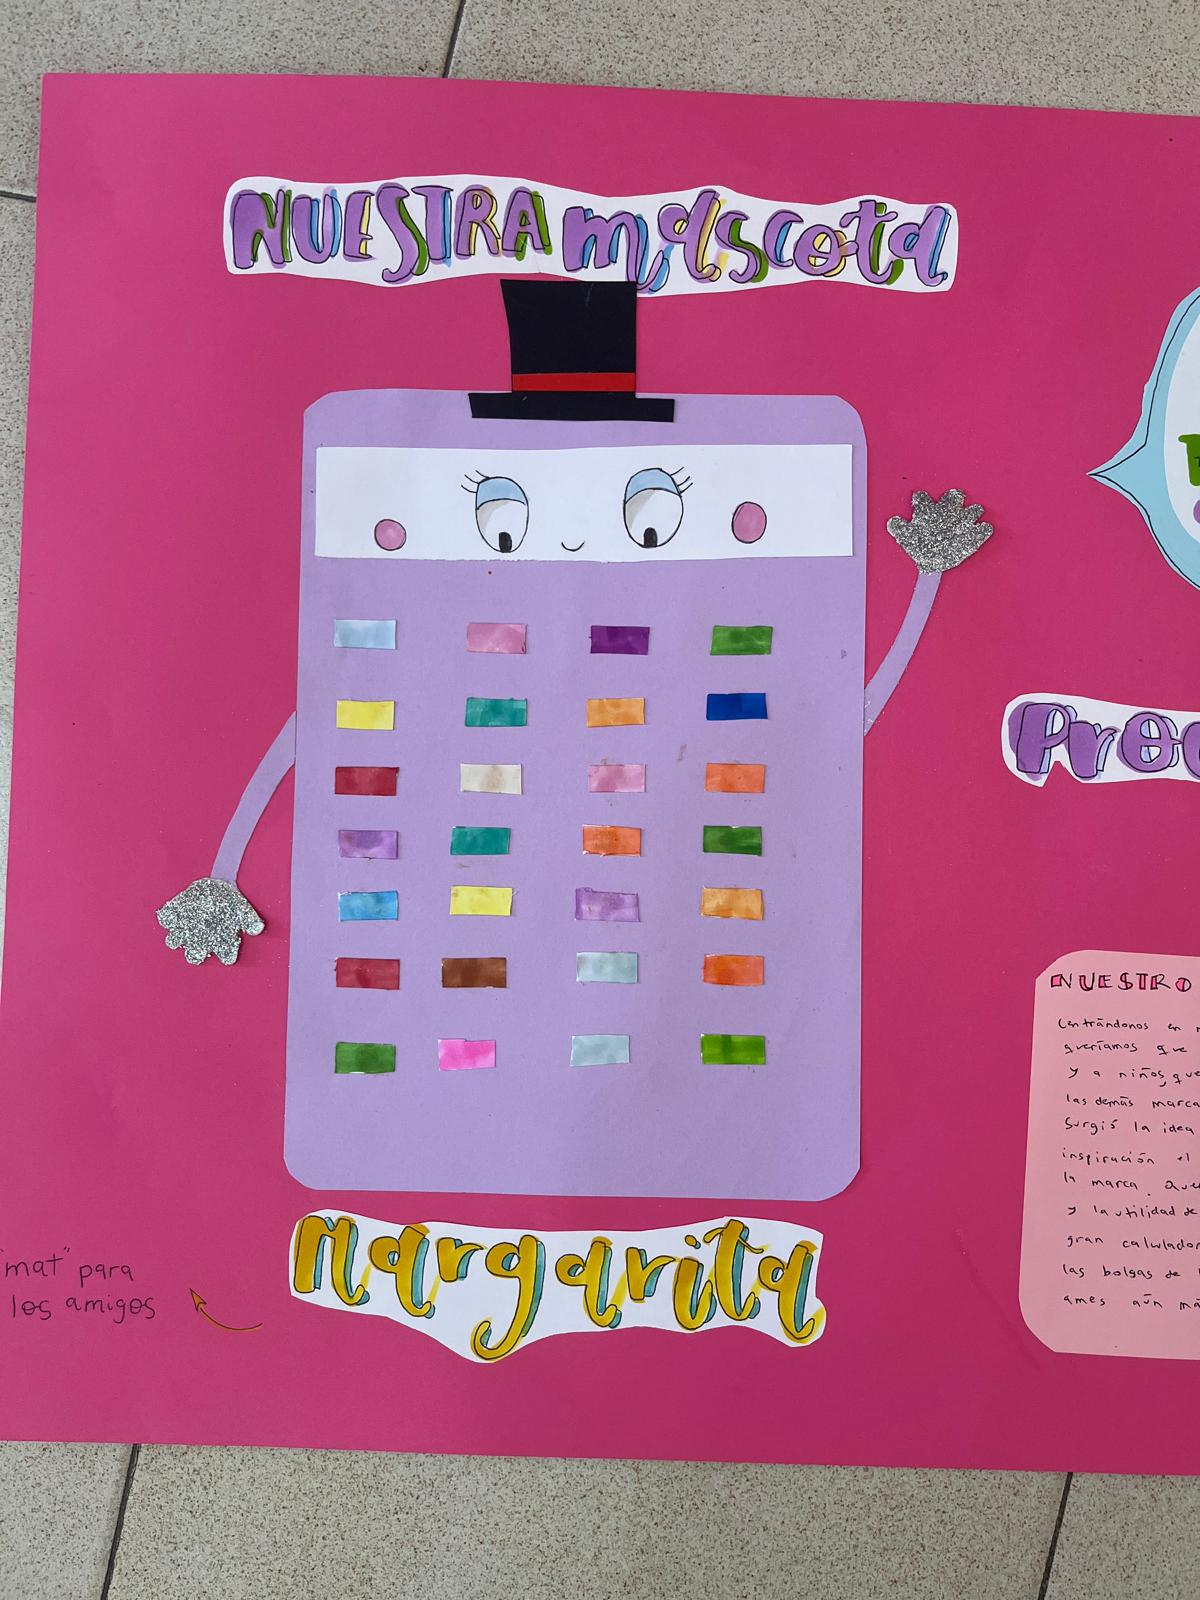 NUESTRA mascota
Margarita
"mat" para
los amigos
NUESTRO
Centrándonos en
queríamos que
y a niños, que
las demás marca
Surgió la idea
inspiración el
la marca. Que
y la utilidad de
gran calculador
las bolsas de
ames aún má